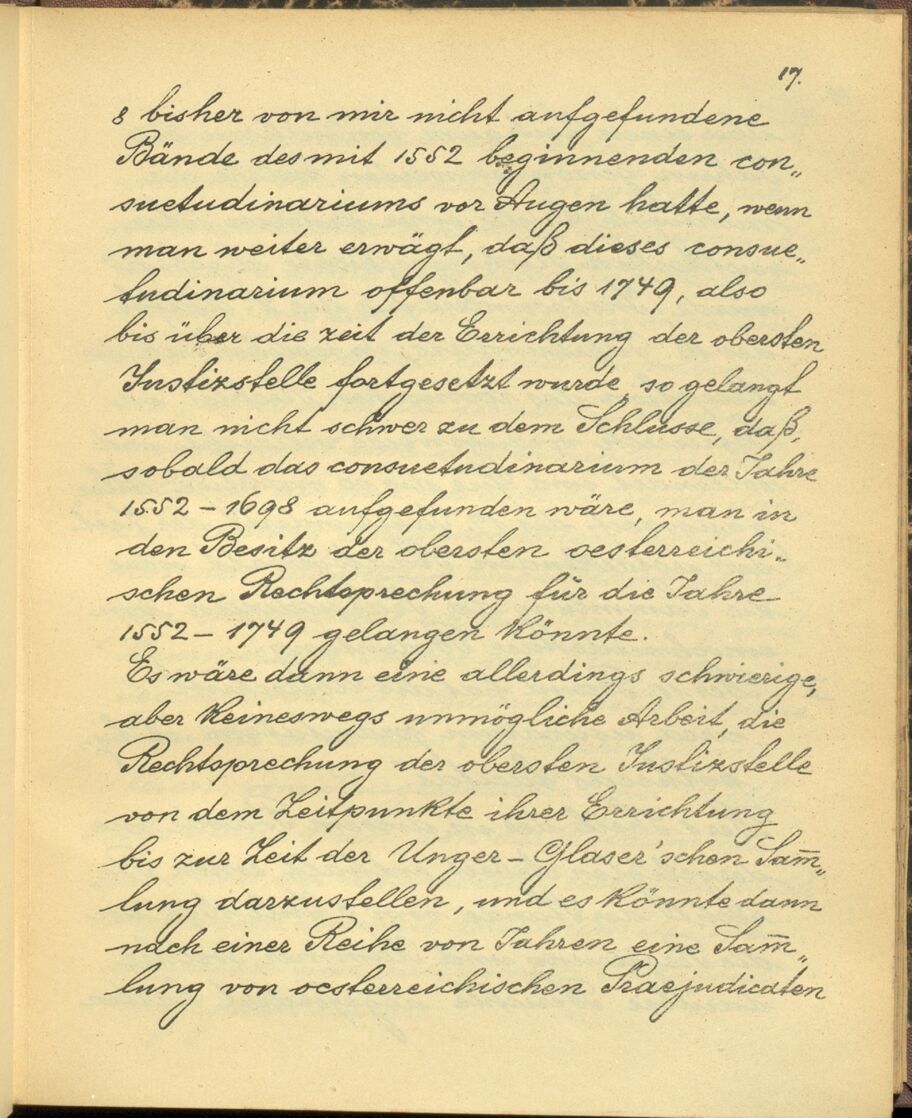 17.
8 bisher von mir nicht aufgefundene
Bände des mit 1552 beginnenden con„
suetudinariums vor Augen hatte, wenn
man weiter erwägt, daß dieses consue„
tudinarium offenbar bis 1749, also
bis über die zeit der Errichtung der obersten
Justizstelle fortgesetzt wurde, so gelangt
man nicht schwer zu dem Schlusse, daß,
sobald das consuetudinarium der Jahre
1552 – 1698 aufgefunden wäre, man in
den Besitz der obersten oesterreichi„
schen Rechtsprechung für die Jahre
1552 – 1749 gelangen könnte.
Es wäre dann eine allerdings schwierige,
aber keineswegs unmögliche Arbeit, die
Rechtsprechung der obersten Justizstelle
von dem Zeitpunkte ihrer Errichtung
bis zur Zeit der Unger – Glaser'schen Sam̅„
lung darzustellen, und es könnte dann
nach einer Reihe von Jahren eine Sam̅„
lung von oesterreichischen Praejudicaten